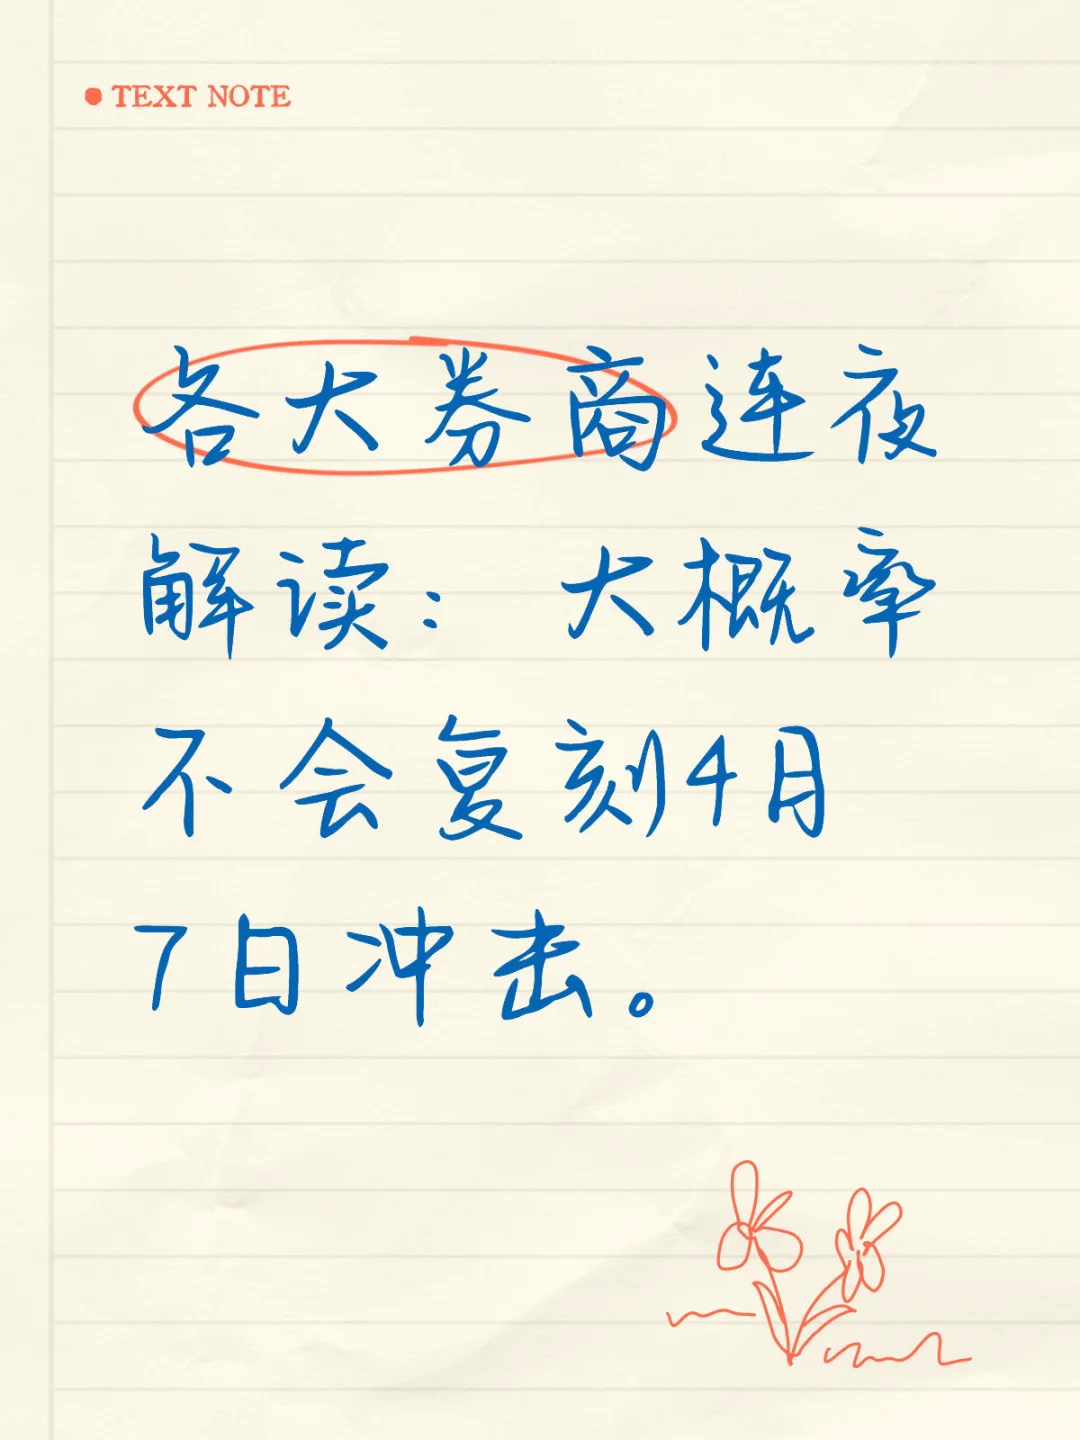 TEXT NOTE
各大券商连夜
解读：大概率
不会复刻4月
7日冲击。